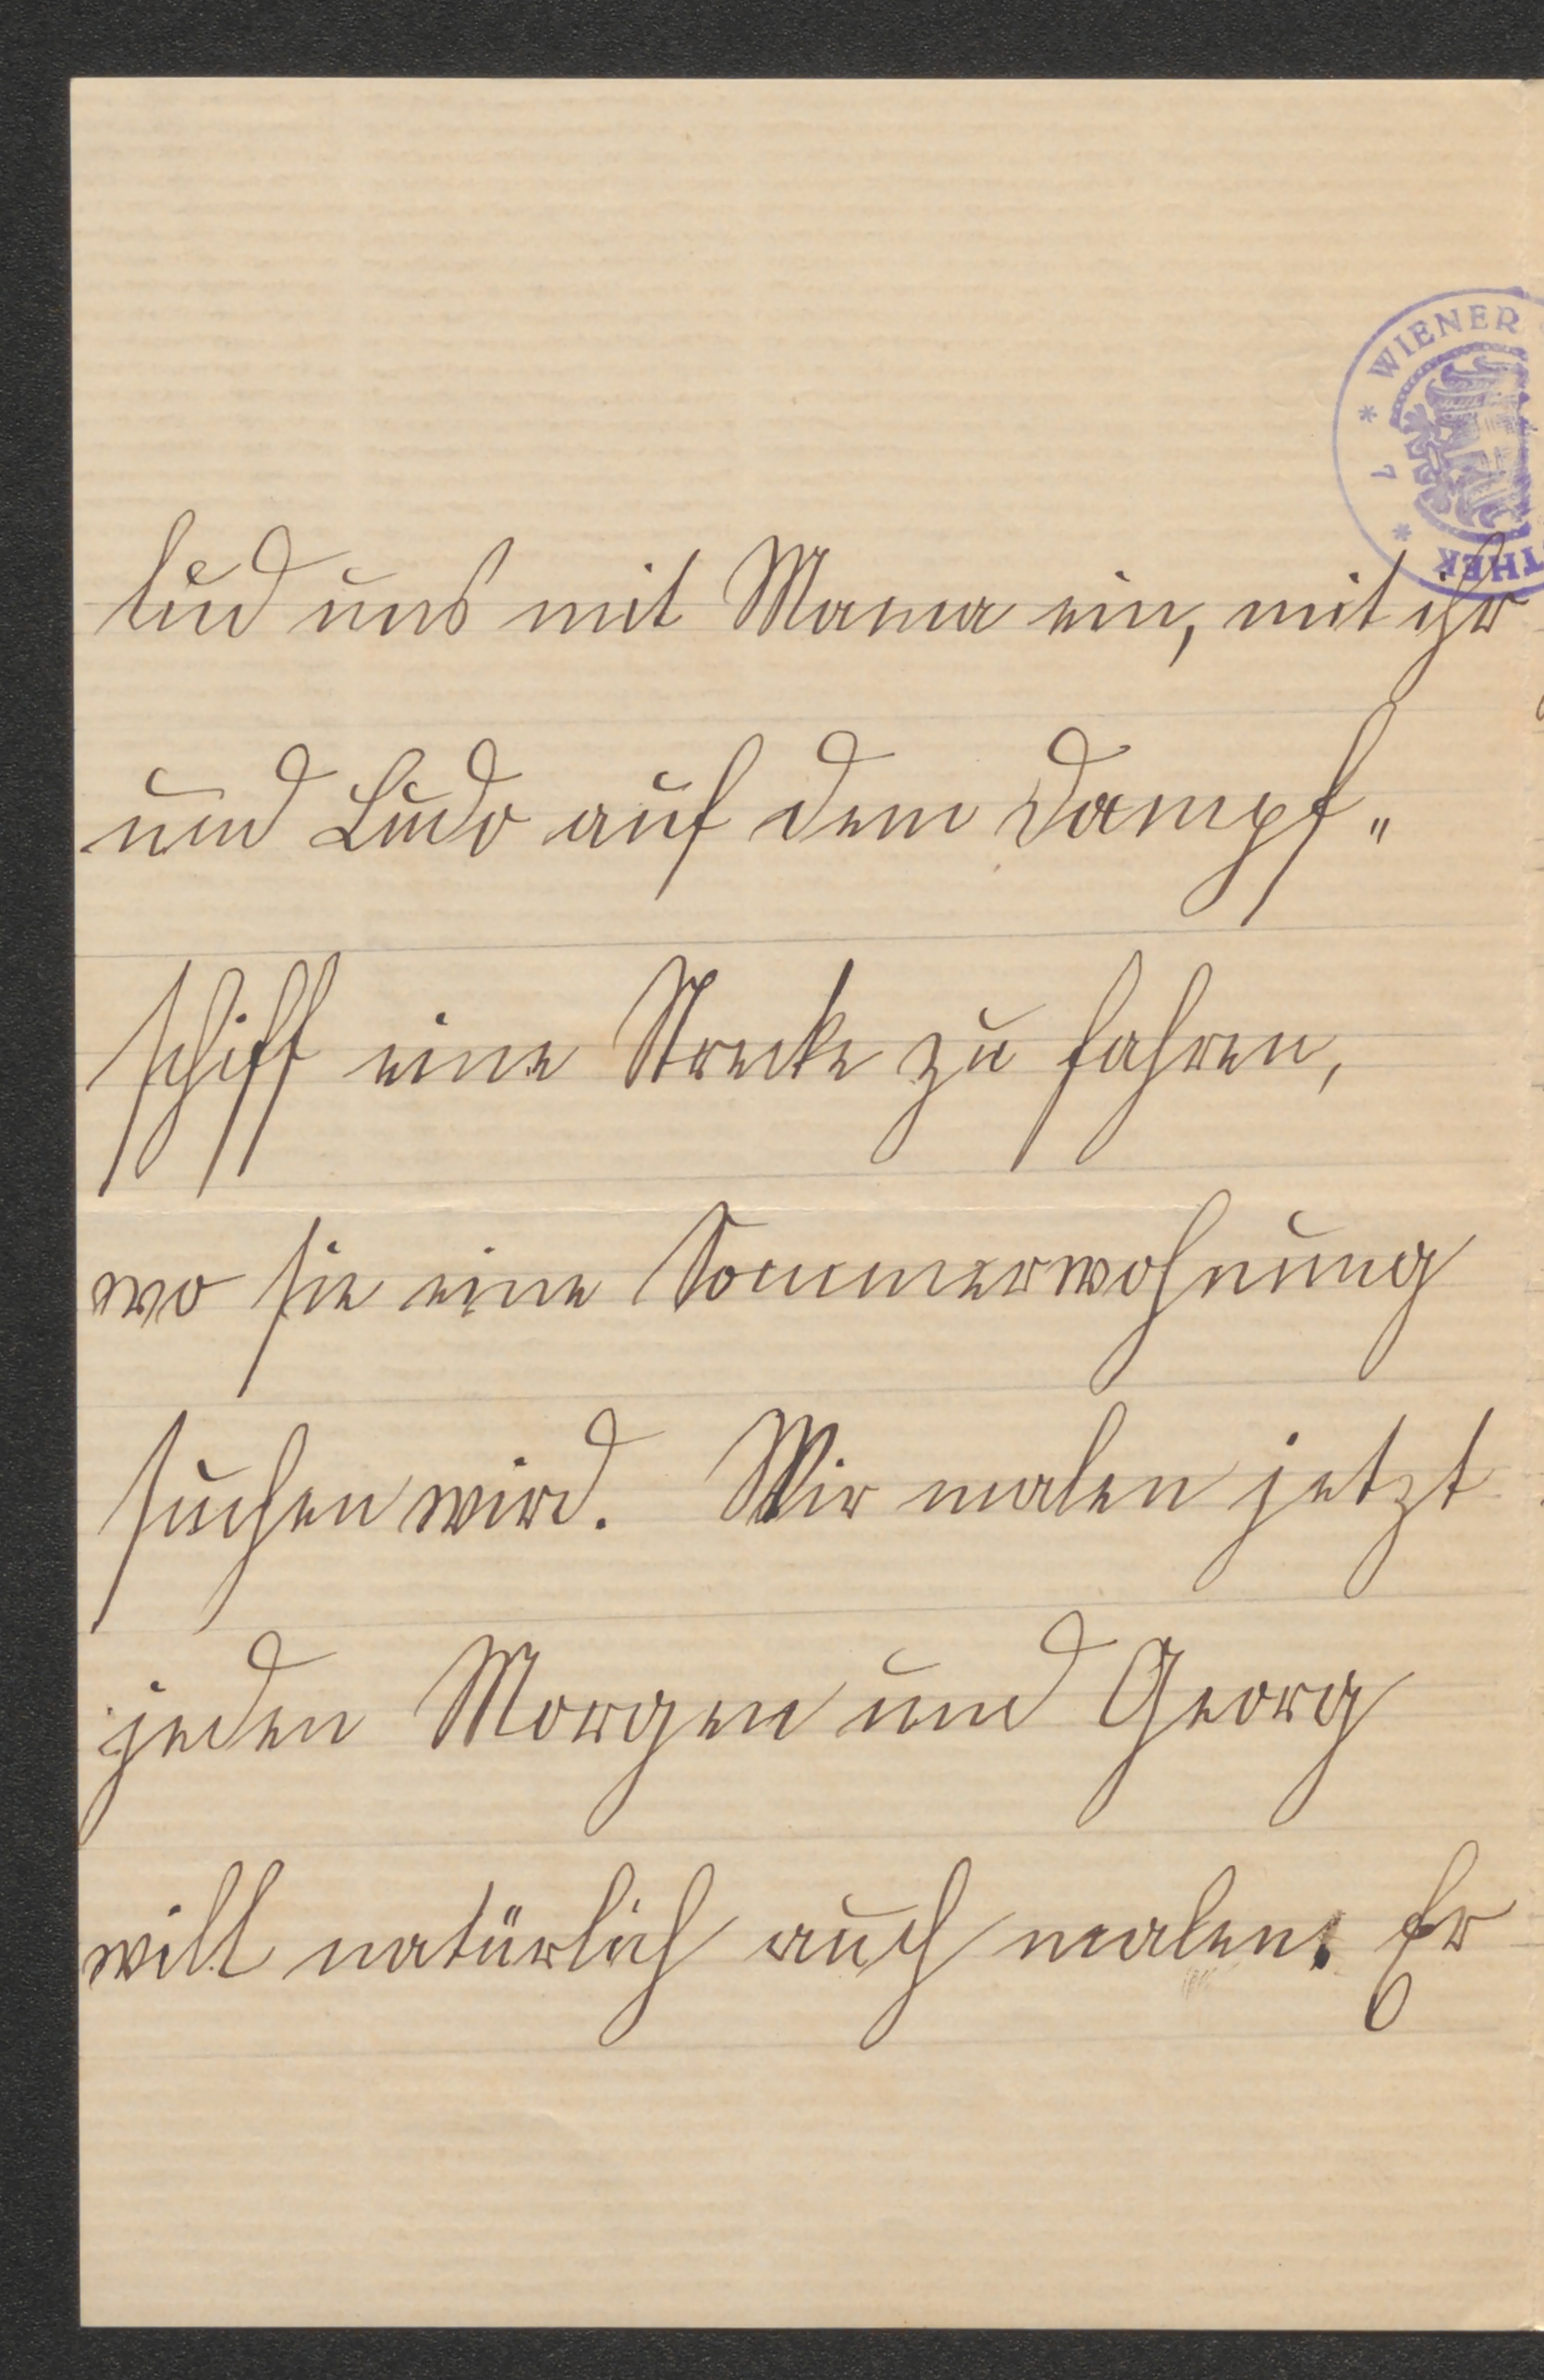 WIENER
7
THEK
lud uns mit Mama ein, mit ihr
und Ludo auf dem Dampf„
schiff eine Strecke zu fahren,
wo sie eine Sommerwohnung
suchen wird. Wir malen jetzt
jeden Morgen und Georg
will natürlich auch malen. Er